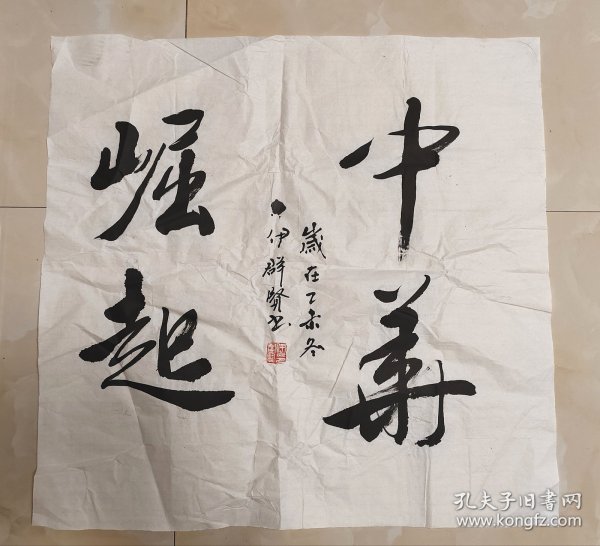 中華
崛起
歲在乙亥冬
伊群賢书
孔夫子旧书网
www.kongfz.com